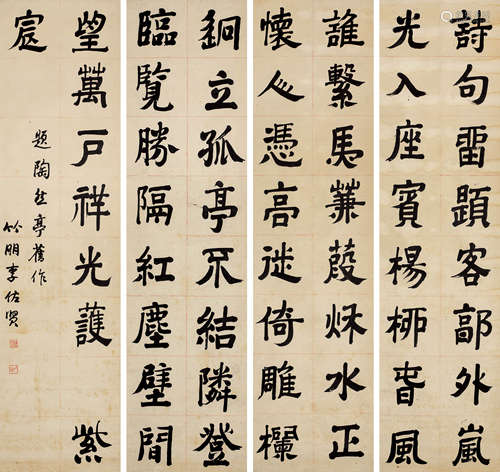 詩句畱題客郊外嵐
光入座賓楊柳春風
誰繫馬蒹葭秋水正
懷人憑高徙倚雕欄
迥立孤亭不結隣登
臨覽勝隔紅塵壁間
望萬戶祥光護紫
宸
題陶然亭舊作
竹朋李佐賢